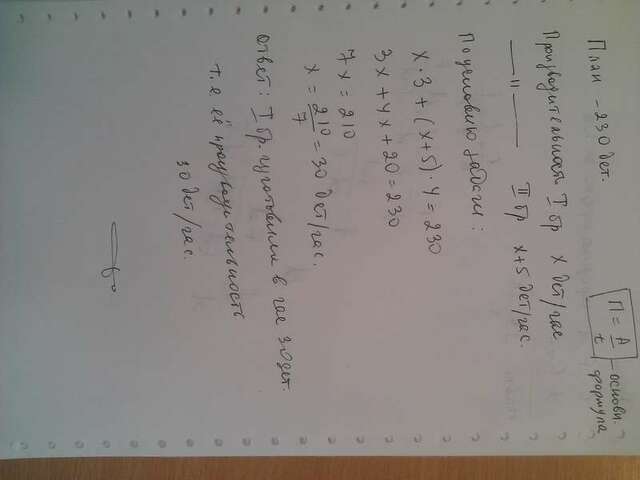 План - 230 дет.
П = A/t - основн. формула
Производительность I бр x дет/час
—— " —— II бр x+5 дет/час.
По условию задачи:
x · 3 + (x+5) · 4 = 230
3x + 4x + 20 = 230
7x = 210
x = 210/7 = 30 дет/час.
Ответ: I бр. изготовили в час 30 дет.
т.е её производительность
30 дет/час.